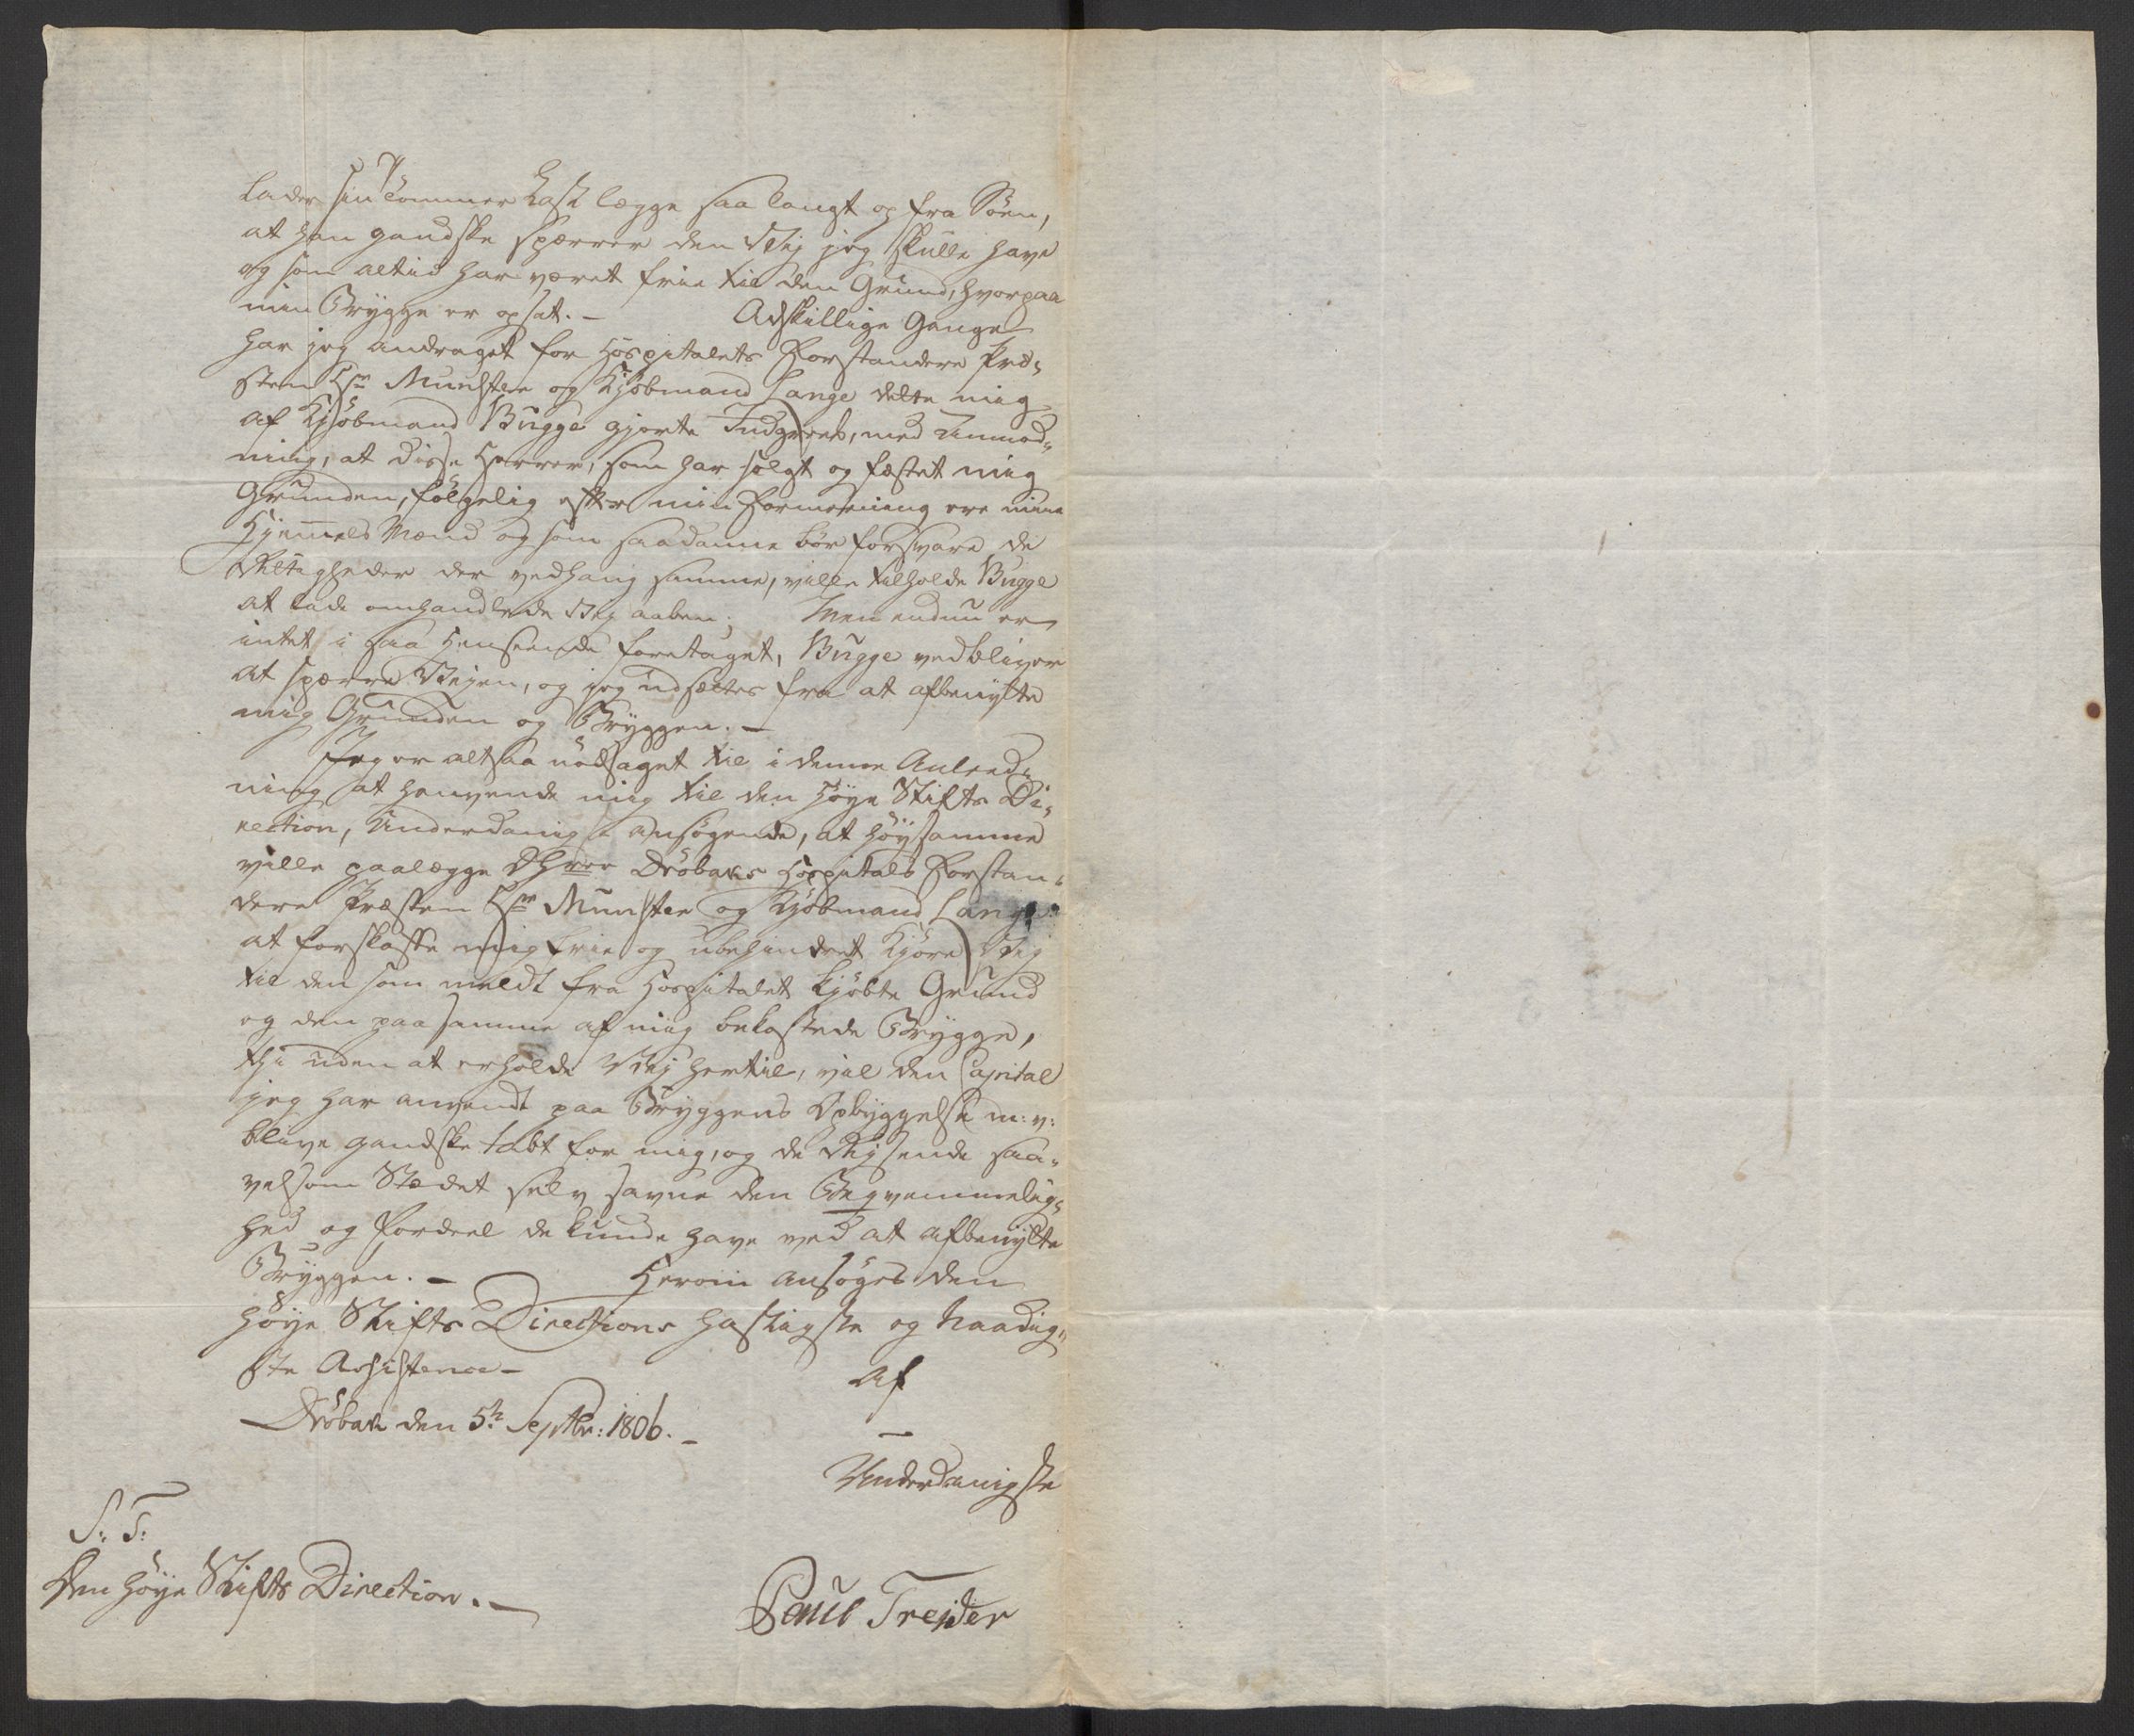 lader sin Tömmer Last lægge saa langt op fra Söen,
at han gandske spærrer den Vej jeg skulle have
og som altid har været frie til den Grund, hvorpaa
min Brygge er opsat. – Adskillige Gange
har jeg andraget for Hospitalets Forstandere Præ-
sten Hr Munster og Kjöbmand Lange dette mig
af Kjöbmand Bugge gjorte Indgreb, med Anmod-
ning, at disse Herrer, som har solgt og fæstet mig
Grunden, fölgelig efter min Formeening ere mine
Hjemmels Mænd og som saadanne bör forsvare de
Rettigheder der vedhang samme, ville tilholde Bugge
at lade omhandlede Vej aaben; Men endnu er
intet i saa Henseende foretaget, Bugge vedbliver
at spærre Vejen, og jeg udsættes fra at afbenytte
mig Grunden og Bryggen. –
Jeg er altsaa nödsaget til i denne Anleed-
ning at henvende mig til den Höye Stifts Di-
rection, Underdanigst ansögende, at Höysamme
ville paalægge Dhrer Dröbaks Hospitals Forstan-
dere Præsten Hr Munster og Kjöbmand Lange
at forskaffe mig frie og ubehindret Kjöre Vej
til den som meldt fra Hospitalet kjöbte Grund
og den paa samme af mig bekostede Brygge,
thi uden at erholde Vej hertil, vil den Capital
jeg har anvendt paa Bryggens Opbyggelse m: v:
blive gandske tabt for mig, og de Reysende saa-
velsom Stædet selv savne den Beqvemmelig-
hed og Fordeel de kunde have ved at afbenytte
Bryggen. – Herom ansöges den
Höye Stifts Directions hastigste og Naadig-
ste Assistence –
af
Dröbak den 5te Septbr: 1806. –
Underdanigste
S: T:
Den Höye Stifts Direction. –
Paul Trejder